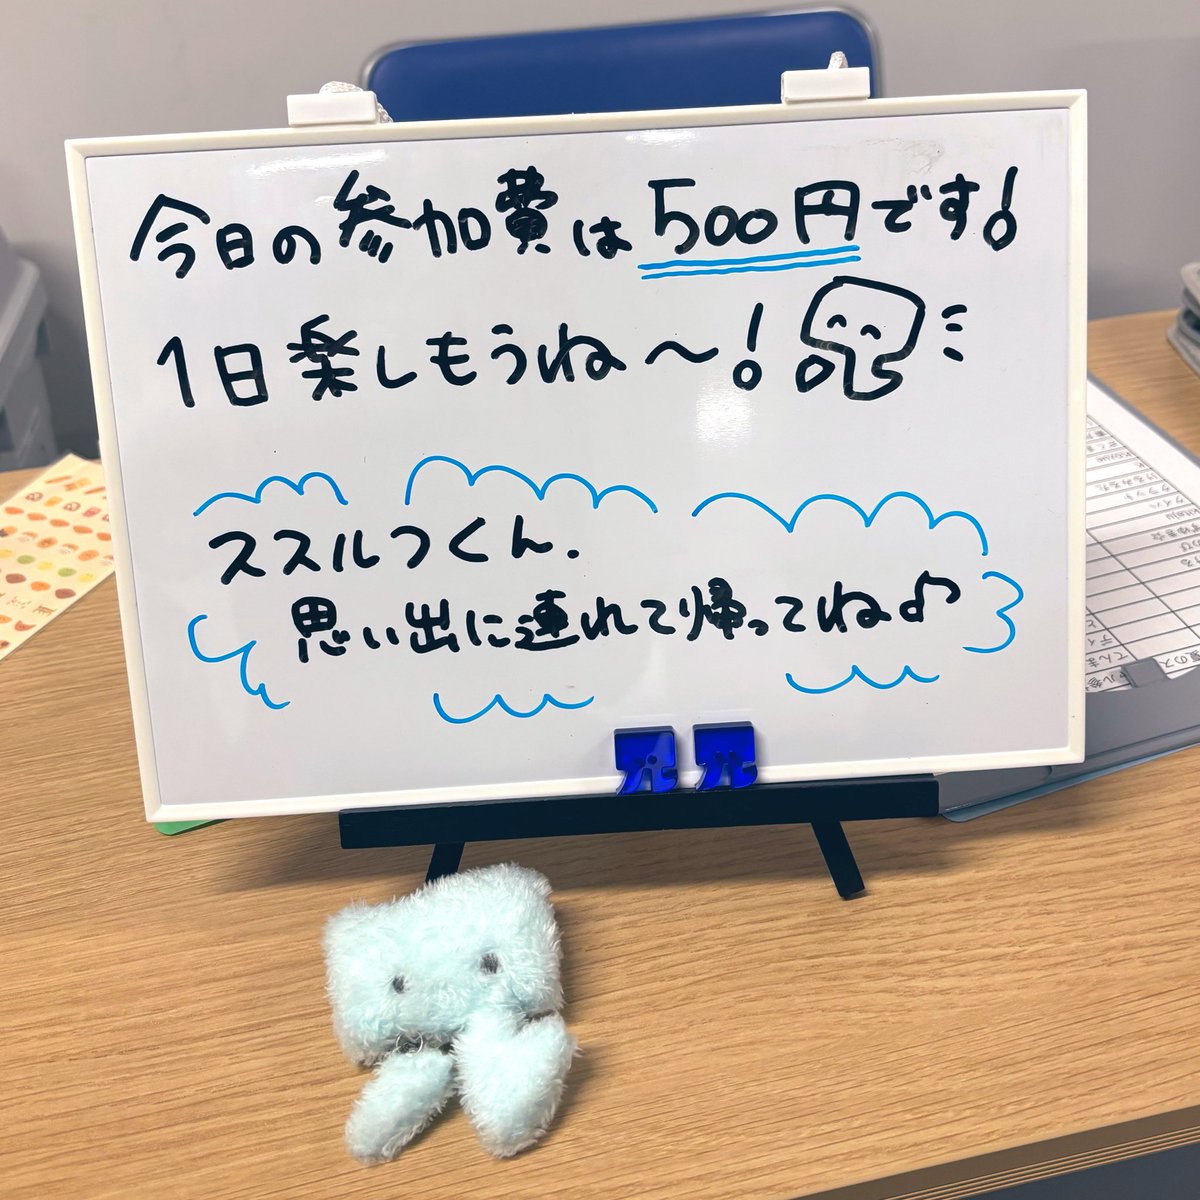 今日の参加費は500円です!
1日楽しもうね〜!
ススルつくん.
思い出に連れて帰ってね♪